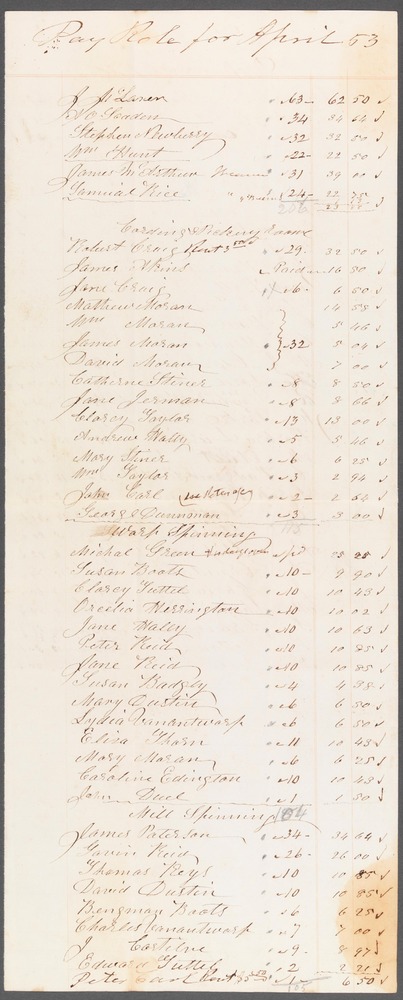 Pay Role for April 53
J McLaren " 63 - 62 50
34 34 64
Stephen Newberry " 32 32 50
Wm Hunt " 22 - 22 50
James McArthur " 31 39 00
Samuial Rice 24 -
206
Carding & Picking Room
Robert Craig Rent 3 50 " 29 - 32 50
James Atkins Paid 16 50
Jane Craig " 6 - 6 50
Mathew Moran 14 58
Wm Moran 5 46
James Moran " 32 5 04
David Moran 7 00
Catherne Stiner " 8 8 50
Jane Jerman " 8 8 66
Clarcy Taylor " 13 13 00
Andrew Haley " 5 5 46
Mary Stiner " 6 6 25
Wm Taylor " 3 2 94
John Carl " 2 - 2 64
George Dunnman " 3 3 00
115
Warp Spinning
Michal Green
Susan Boots " 10 - 9 90
Clarcy Tuttel " 10 10 43
Orcelia Herrington " 10 10 02
Jane Haley " 10 10 63
Peter Reid " 10 10 85
Jane Reid " 10 10 85
Susan Badgly " 4 4 38
Mary Dustin " 6 6 50
Lydia Vanantwarp " 6 6 50
Eliza Thorn " 11 10 43
Mary Moran " 6 6 25
Caroline Edington " 10 10 43
John Duel " 1 1 50
Mill Spinning 104
James Paterson " 34 - 34 64
Gavin Reid " 26 - 26 00
Thomas Keys " 10 10 85
David Dustin " 10 10 85
Bengman Boots " 6 6 25
Charles Vanantwarp " 7 7 00
J Costilne " 9 - 8 97
Edward Tuttel " 2 2 21
Peter Carl Rent 6 50
105